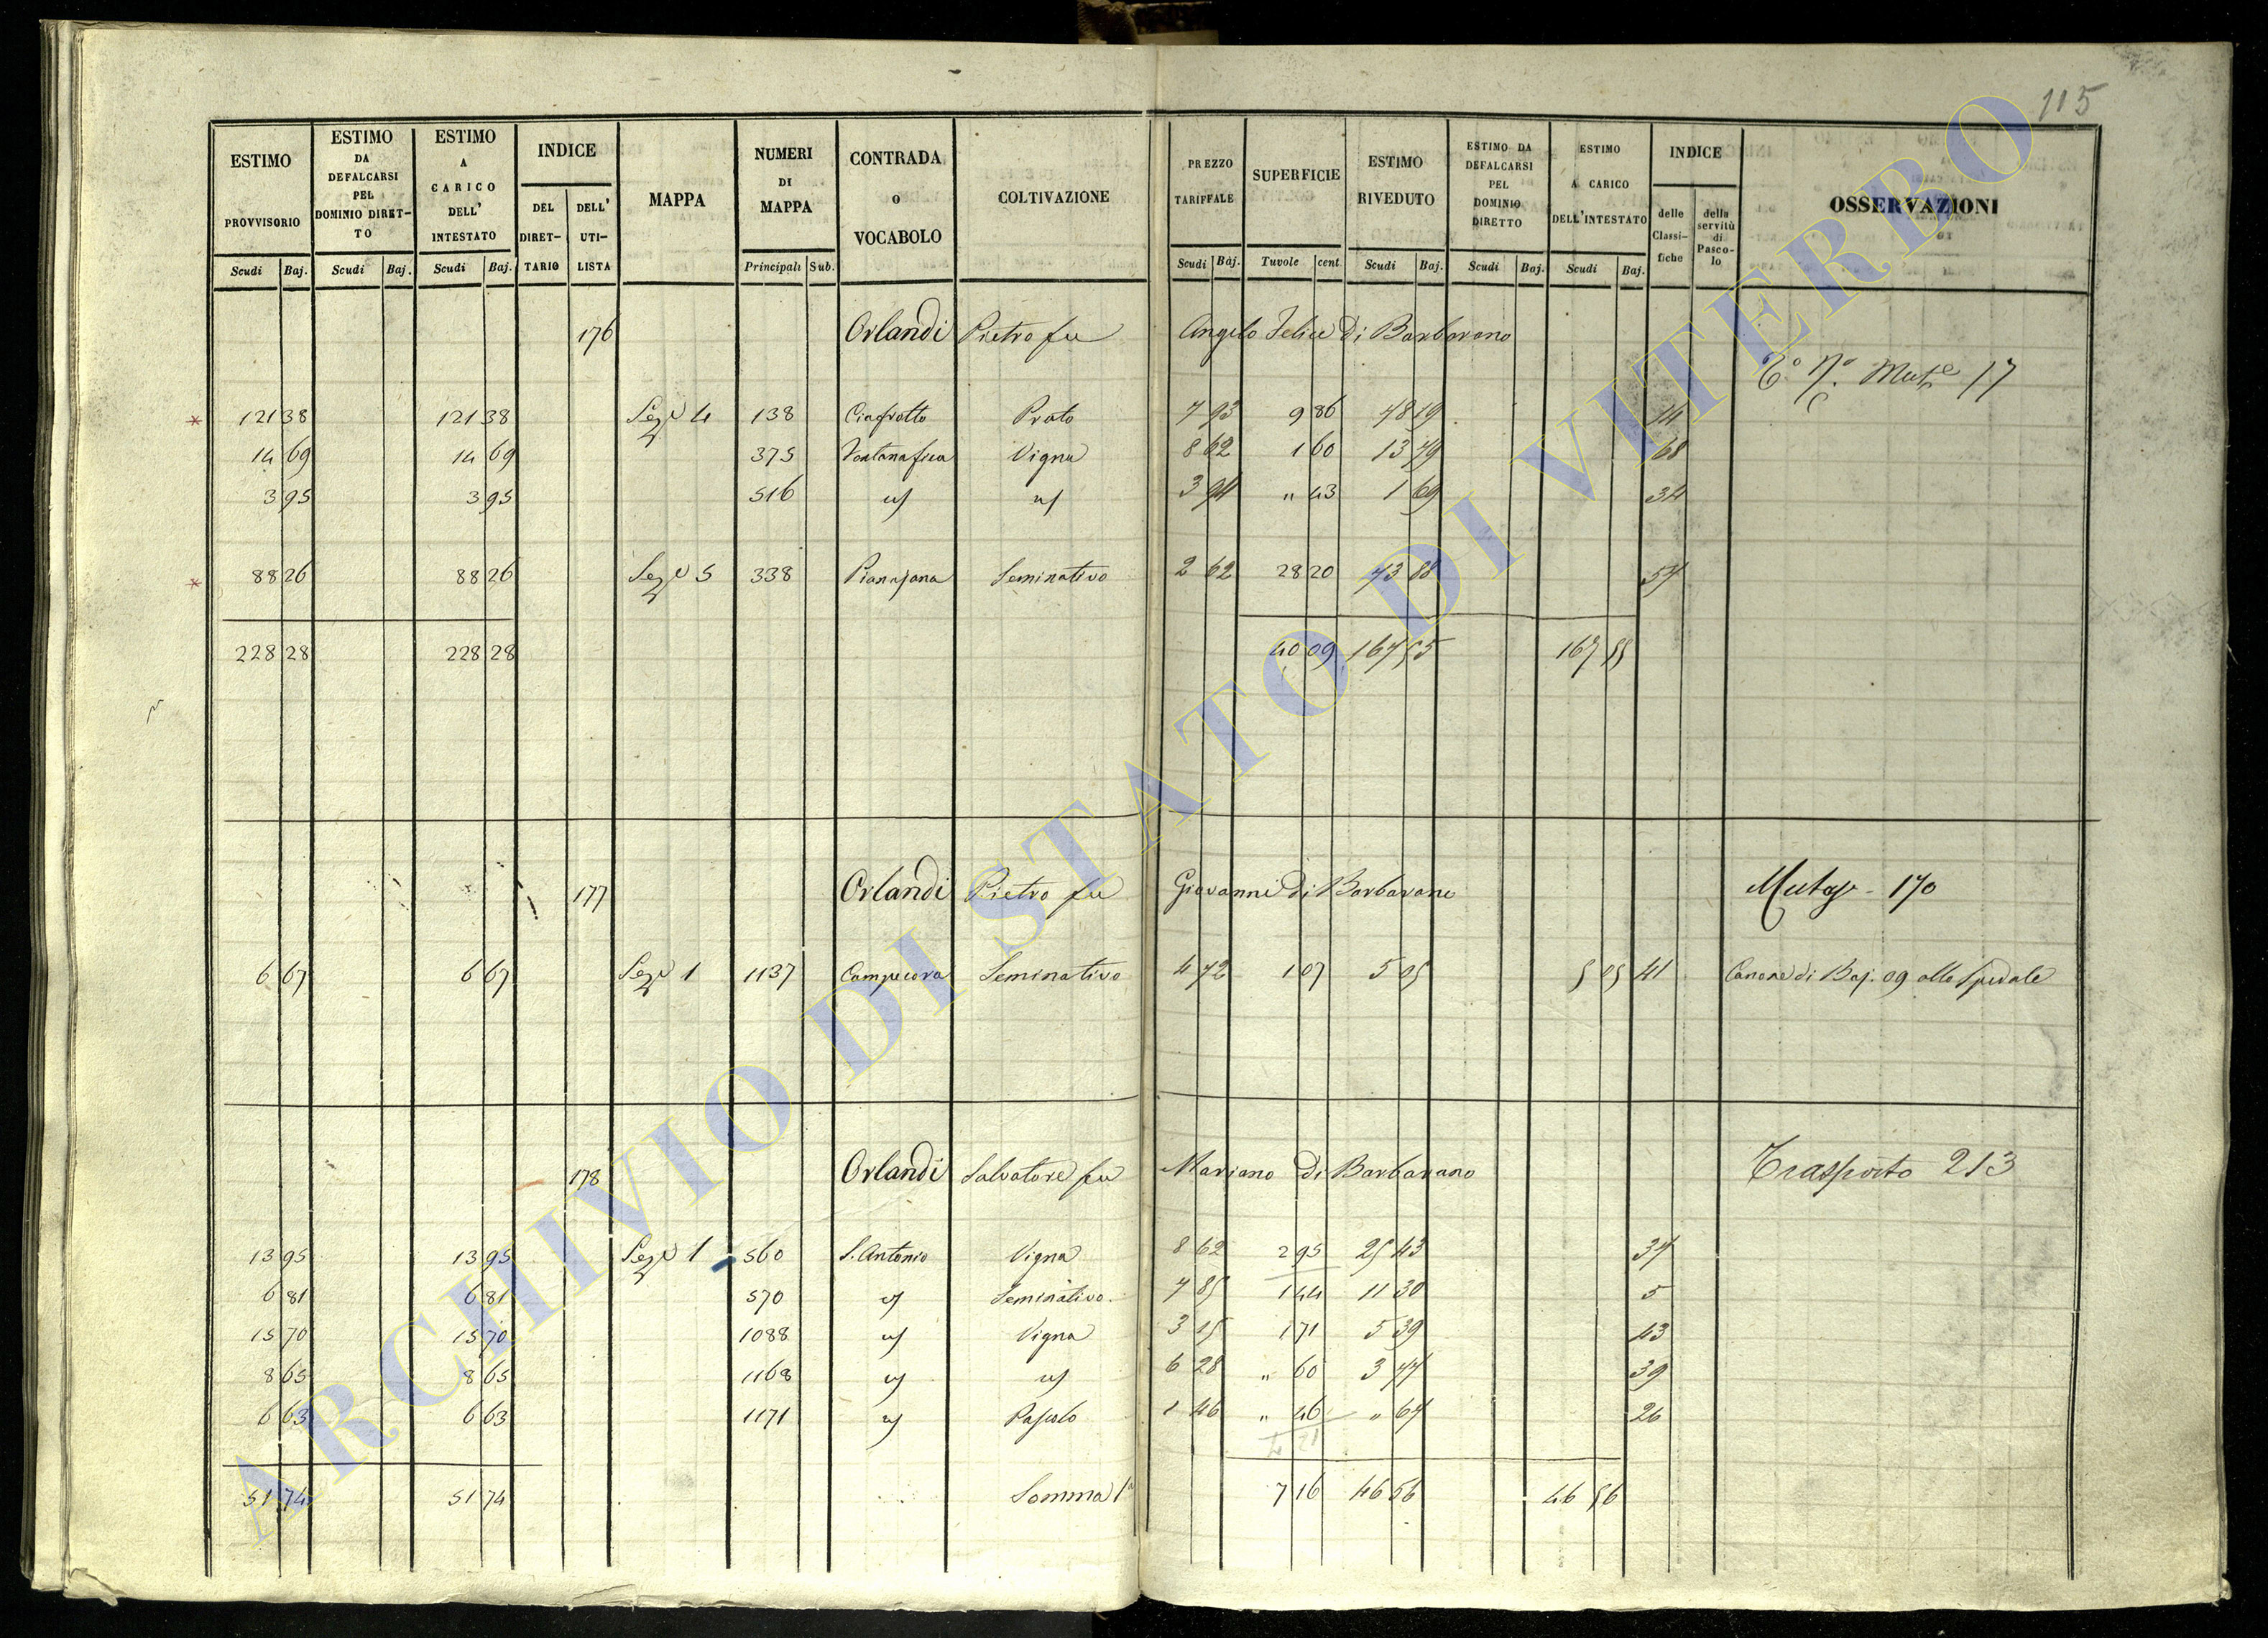 115
ESTIMO PROVVISORIO
ESTIMO DA DEFALCARSI PEL DOMINIO DIRET-TO
ESTIMO A CARICO DELL' INTESTATO
INDICE
DEL DIRET-TARIO
DELL' UTI-LISTA
MAPPA
NUMERI DI MAPPA
CONTRADA o VOCABOLO
COLTIVAZIONE
PREZZO TARIFFALE
SUPERFICIE
ESTIMO RIVEDUTO
ESTIMO DA DEFALCARSI PEL DOMINIO DIRETTO
ESTIMO A CARICO DELL'INTESTATO
INDICE
delle Classi-fiche
della servitù di Pasco-lo
OSSERVAZIONI
Scudi Baj. Scudi Baj. Scudi Baj. Principali Sub. Scudi Baj. Tavole cent. Scudi Baj. Scudi Baj. Scudi Baj.
176 Orlandi Pietro fu Angelo Felice di Barbarano
17
121 38 121 38 Sez.e 4 138 Ciafrotto Prato 7 93 9 86 78 19 14
14 69 14 69 375 Fontanafica Vigna 8 62 1 60 13 79 68
3 95 3 95 516 3 94 " 43 1 69 34
88 26 88 26 Sez.e 5 338 Seminativo 2 62 28 20 73 88 57
228 28 228 28 40 09 167 55 167 55
177 Orlandi Pietro fu Giovanni di Barbarano
170
6 67 6 67 Sez.e 1 1137 Campecora Seminativo 4 72 1 07 5 05 5 05 41 Canone di Baj. 09 allo Spedale
178 Orlandi Salvatore fu Mariano di Barbarano
Trasporto 213
13 95 13 95 Sez.e 1 560 S. Antonio Vigna 8 62 2 95 25 43 37
6 81 6 81 570 Seminativo 7 85 1 44 11 30 5
15 70 15 70 1088 Vigna 3 15 1 71 5 39 43
8 65 8 65 1168 6 28 " 60 3 77 39
6 63 6 63 1171 Pascolo 1 46 " 46 " 67 26
51 74 51 74 Somma 1a 7 16 46 56 46 56
ARCHIVIO DI STATO DI VITERBO